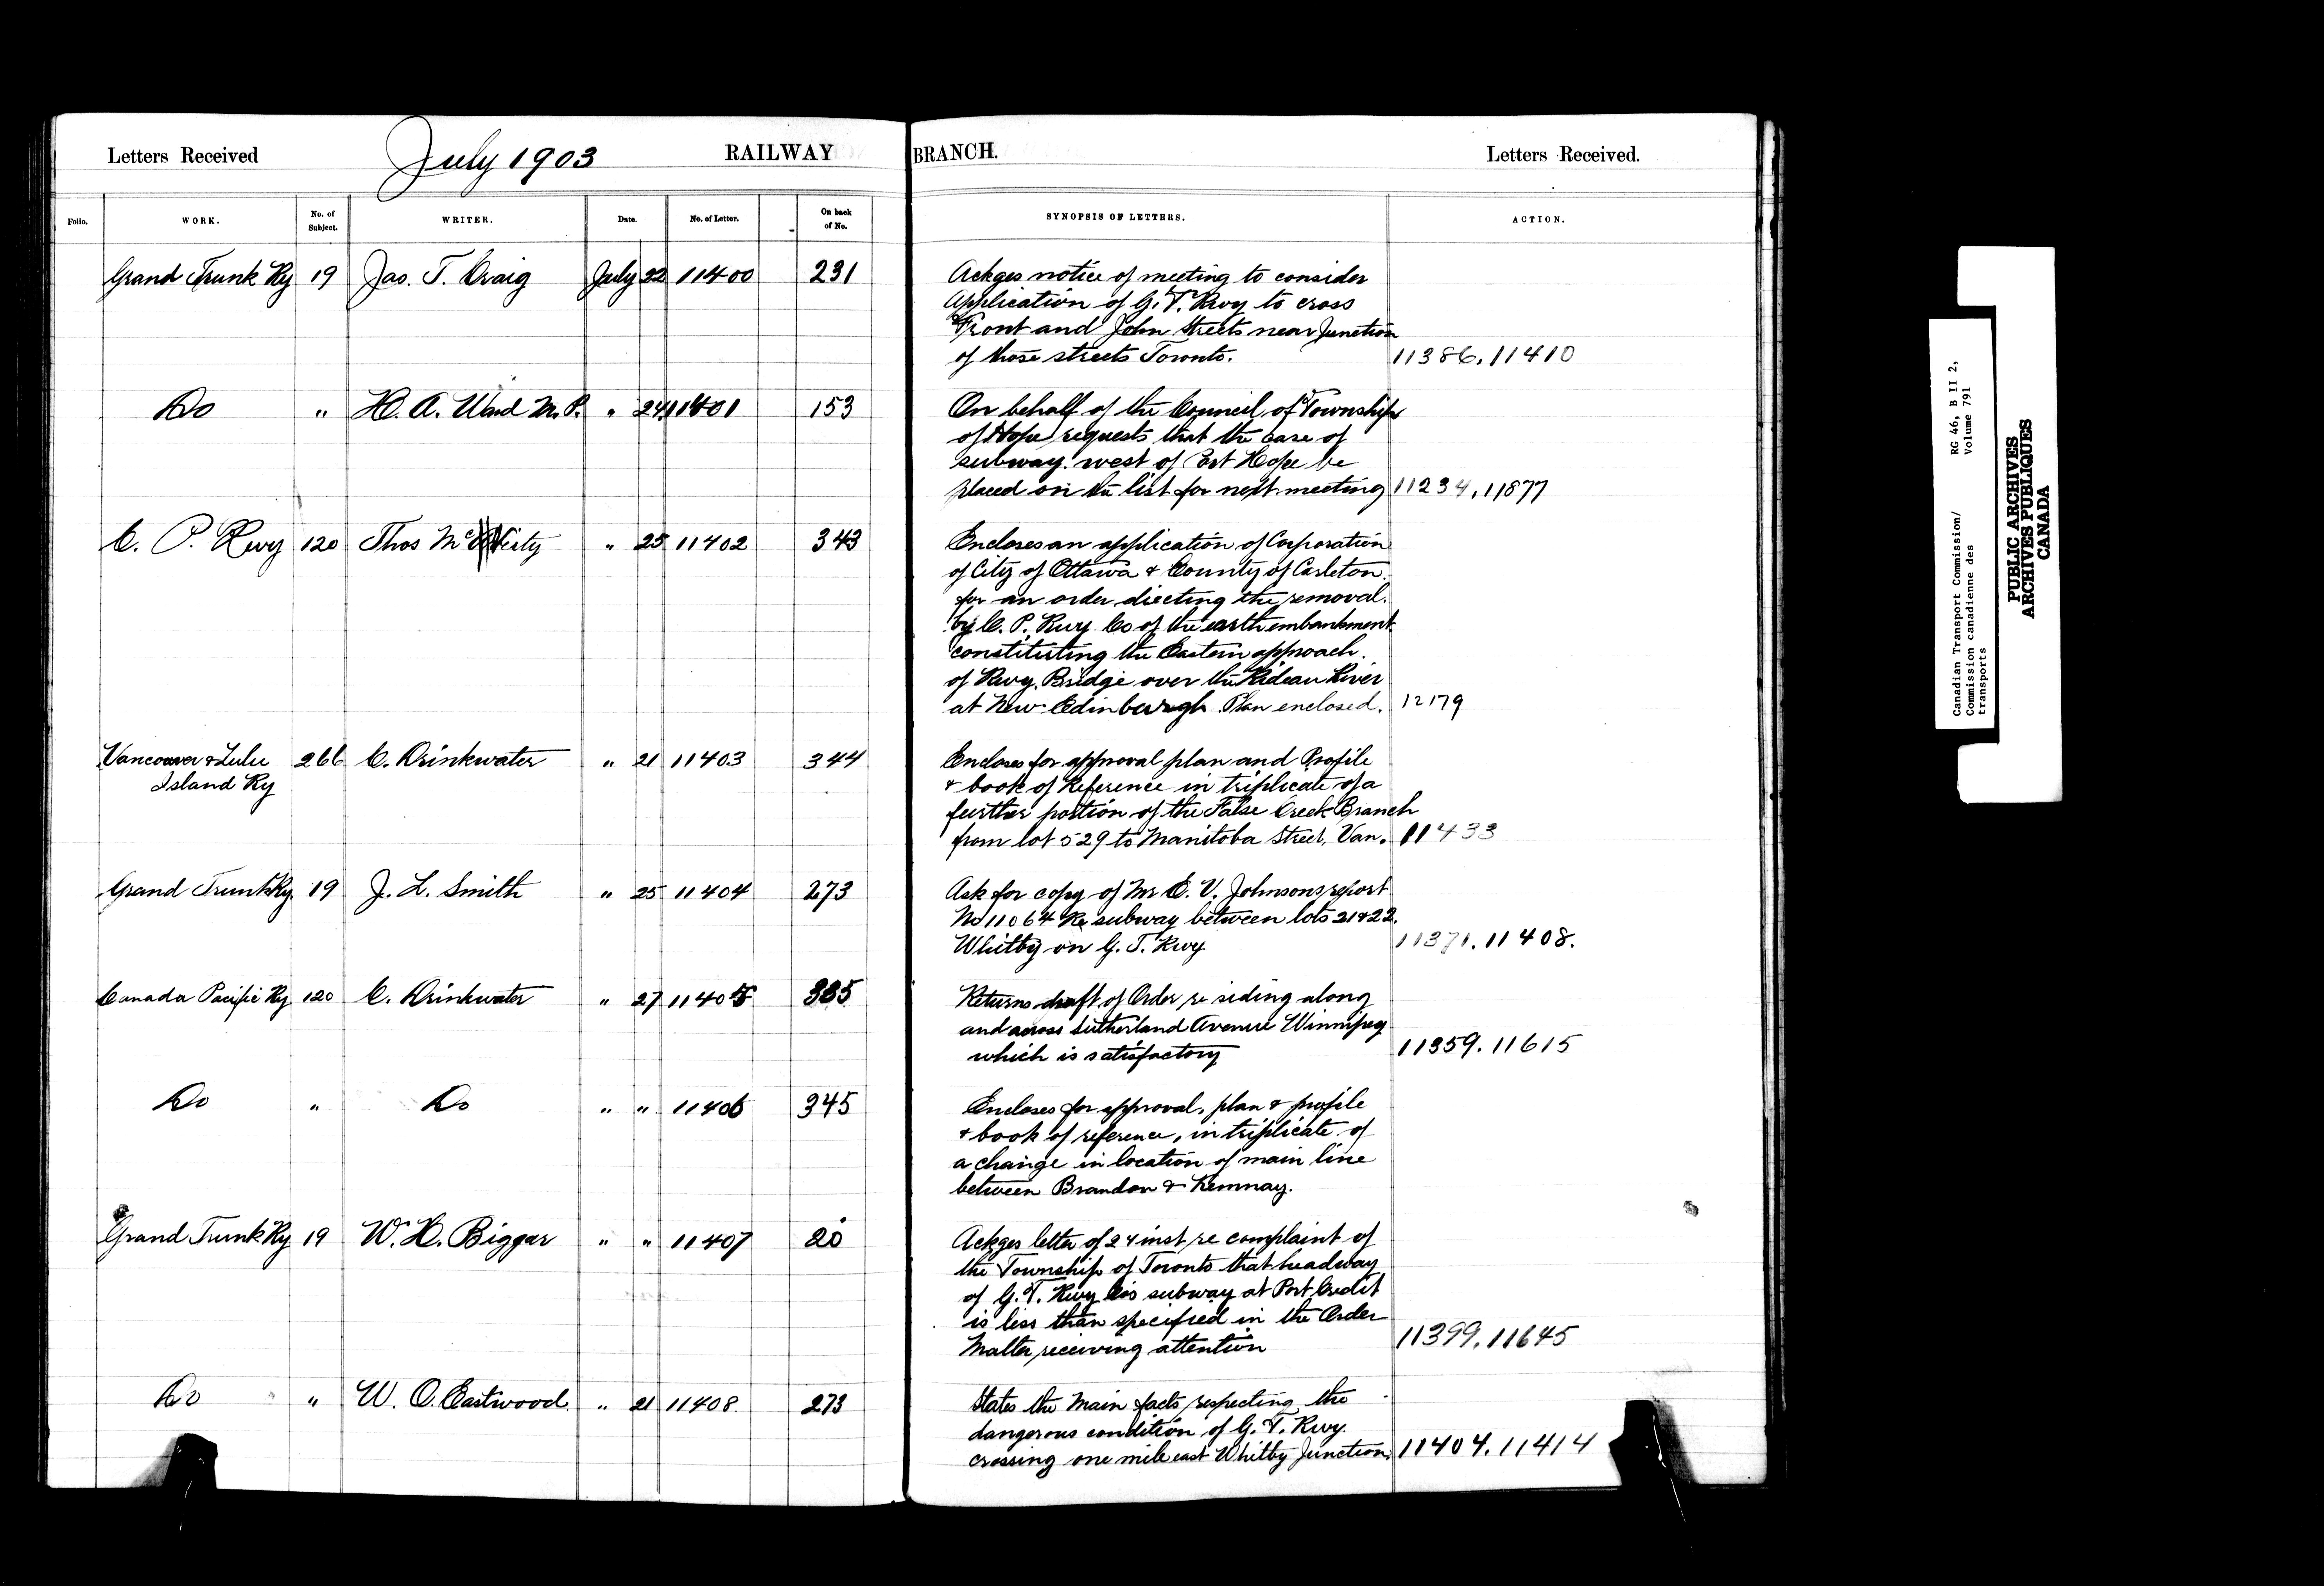 Letters Received July 1903 RAILWAY BRANCH. Letters Received.
Folio. WORK. No. of Subject. WRITER. Date. No. of Letter. On back of No. SYNOPSIS OF LETTERS. ACTION.
Grand Trunk Ry 19 Jas. T. Craig July 22 11400 231 Ackges notice of meeting to consider
Application of G. T. Rwy to cross
Front and John Streets near Junction
of those streets Toronto. 11386, 11410
Do " H. A. Ward M. P. " 24 11401 153 On behalf of the Council of Township
of Hope requests that the case of
subway west of Port Hope be
placed on the list for next meeting 11234, 11877
C. P. Rwy 120 Thos Mc Veity " 25 11402 343 Encloses an application of Corporation
of City of Ottawa & County of Carleton
for an order directing the removal
by C. P. Rwy Co of the earth embankment
constituting the Eastern approach
of Rwy Bridge over the Rideau River
at New Edinburgh Plan enclosed. 12179
Vancouver & Lulu 266 C. Drinkwater " 21 11403 344 Encloses for approval plan and Profile
Island Ry & book of Reference in triplicate of a
further portion of the False Creek Branch
from lot 529 to Manitoba Street, Van. 11433
Grand Trunk Ry. 19 J. L. Smith " 25 11404 273 Ask for copy of Mr E. V. Johnsons report
No 11064 Re subway between lots 21 & 22.
Whitby on G. T. Rwy 11371. 11408.
Canada Pacific Ry 120 C. Drinkwater " 27 11405 335 Returns draft of Order re siding along
and across Sutherland Avenue Winnipeg
which is satisfactory 11359. 11615
Do " Do " " 11406 345 Encloses for approval, plan & profile
& book of reference, in triplicate of
a change in location of main line
between Brandon & Kemnay.
Grand Trunk Ry 19 W. H. Biggar " " 11407 20 Ackges letter of 24 inst re complaint of
the Township of Toronto that headway
of G. T. Rwy Co's subway at Port Credit
is less than specified in the Order
Matter receiving attention 11399. 11645
Do " W. O. Eastwood " 21 11408 273 States the Main facts respecting the
dangerous condition of G. T. Rwy.
crossing one mile east Whitby Junction. 11404. 11414
Canadian Transport Commission/ RG 46, B II 2,
Commission canadienne des Volume 791
transports
PUBLIC ARCHIVES
ARCHIVES PUBLIQUES
CANADA